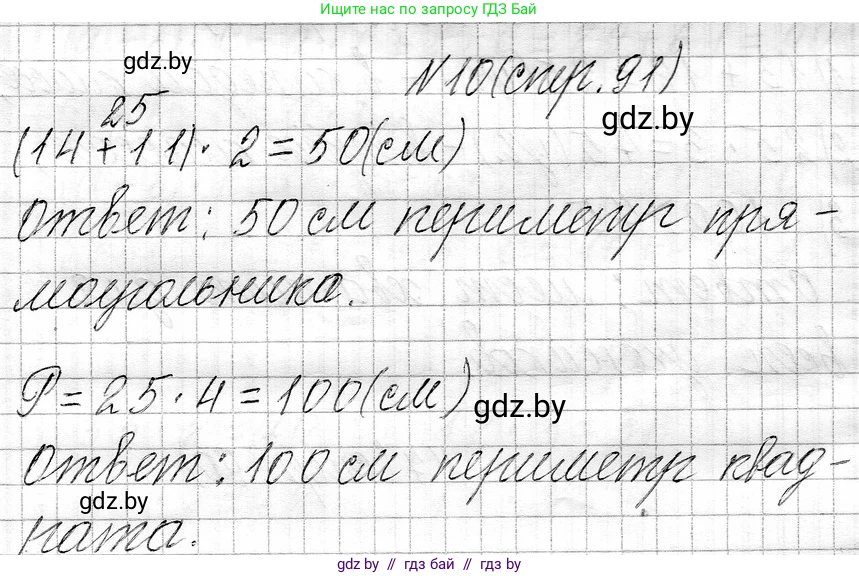 Ищите нас по запросу ГДЗ Бай
gdz.by
N10(стр.91)
25
gdz.by
(14+11)·2=50(см)
Ответ: 50 см периметр пря-
моугольника.
P=25·4=100(см)
gdz.by
Ответ: 100 см периметр квад-
gdz.by
рата.
gdz.by // гдз бай // gdz.by